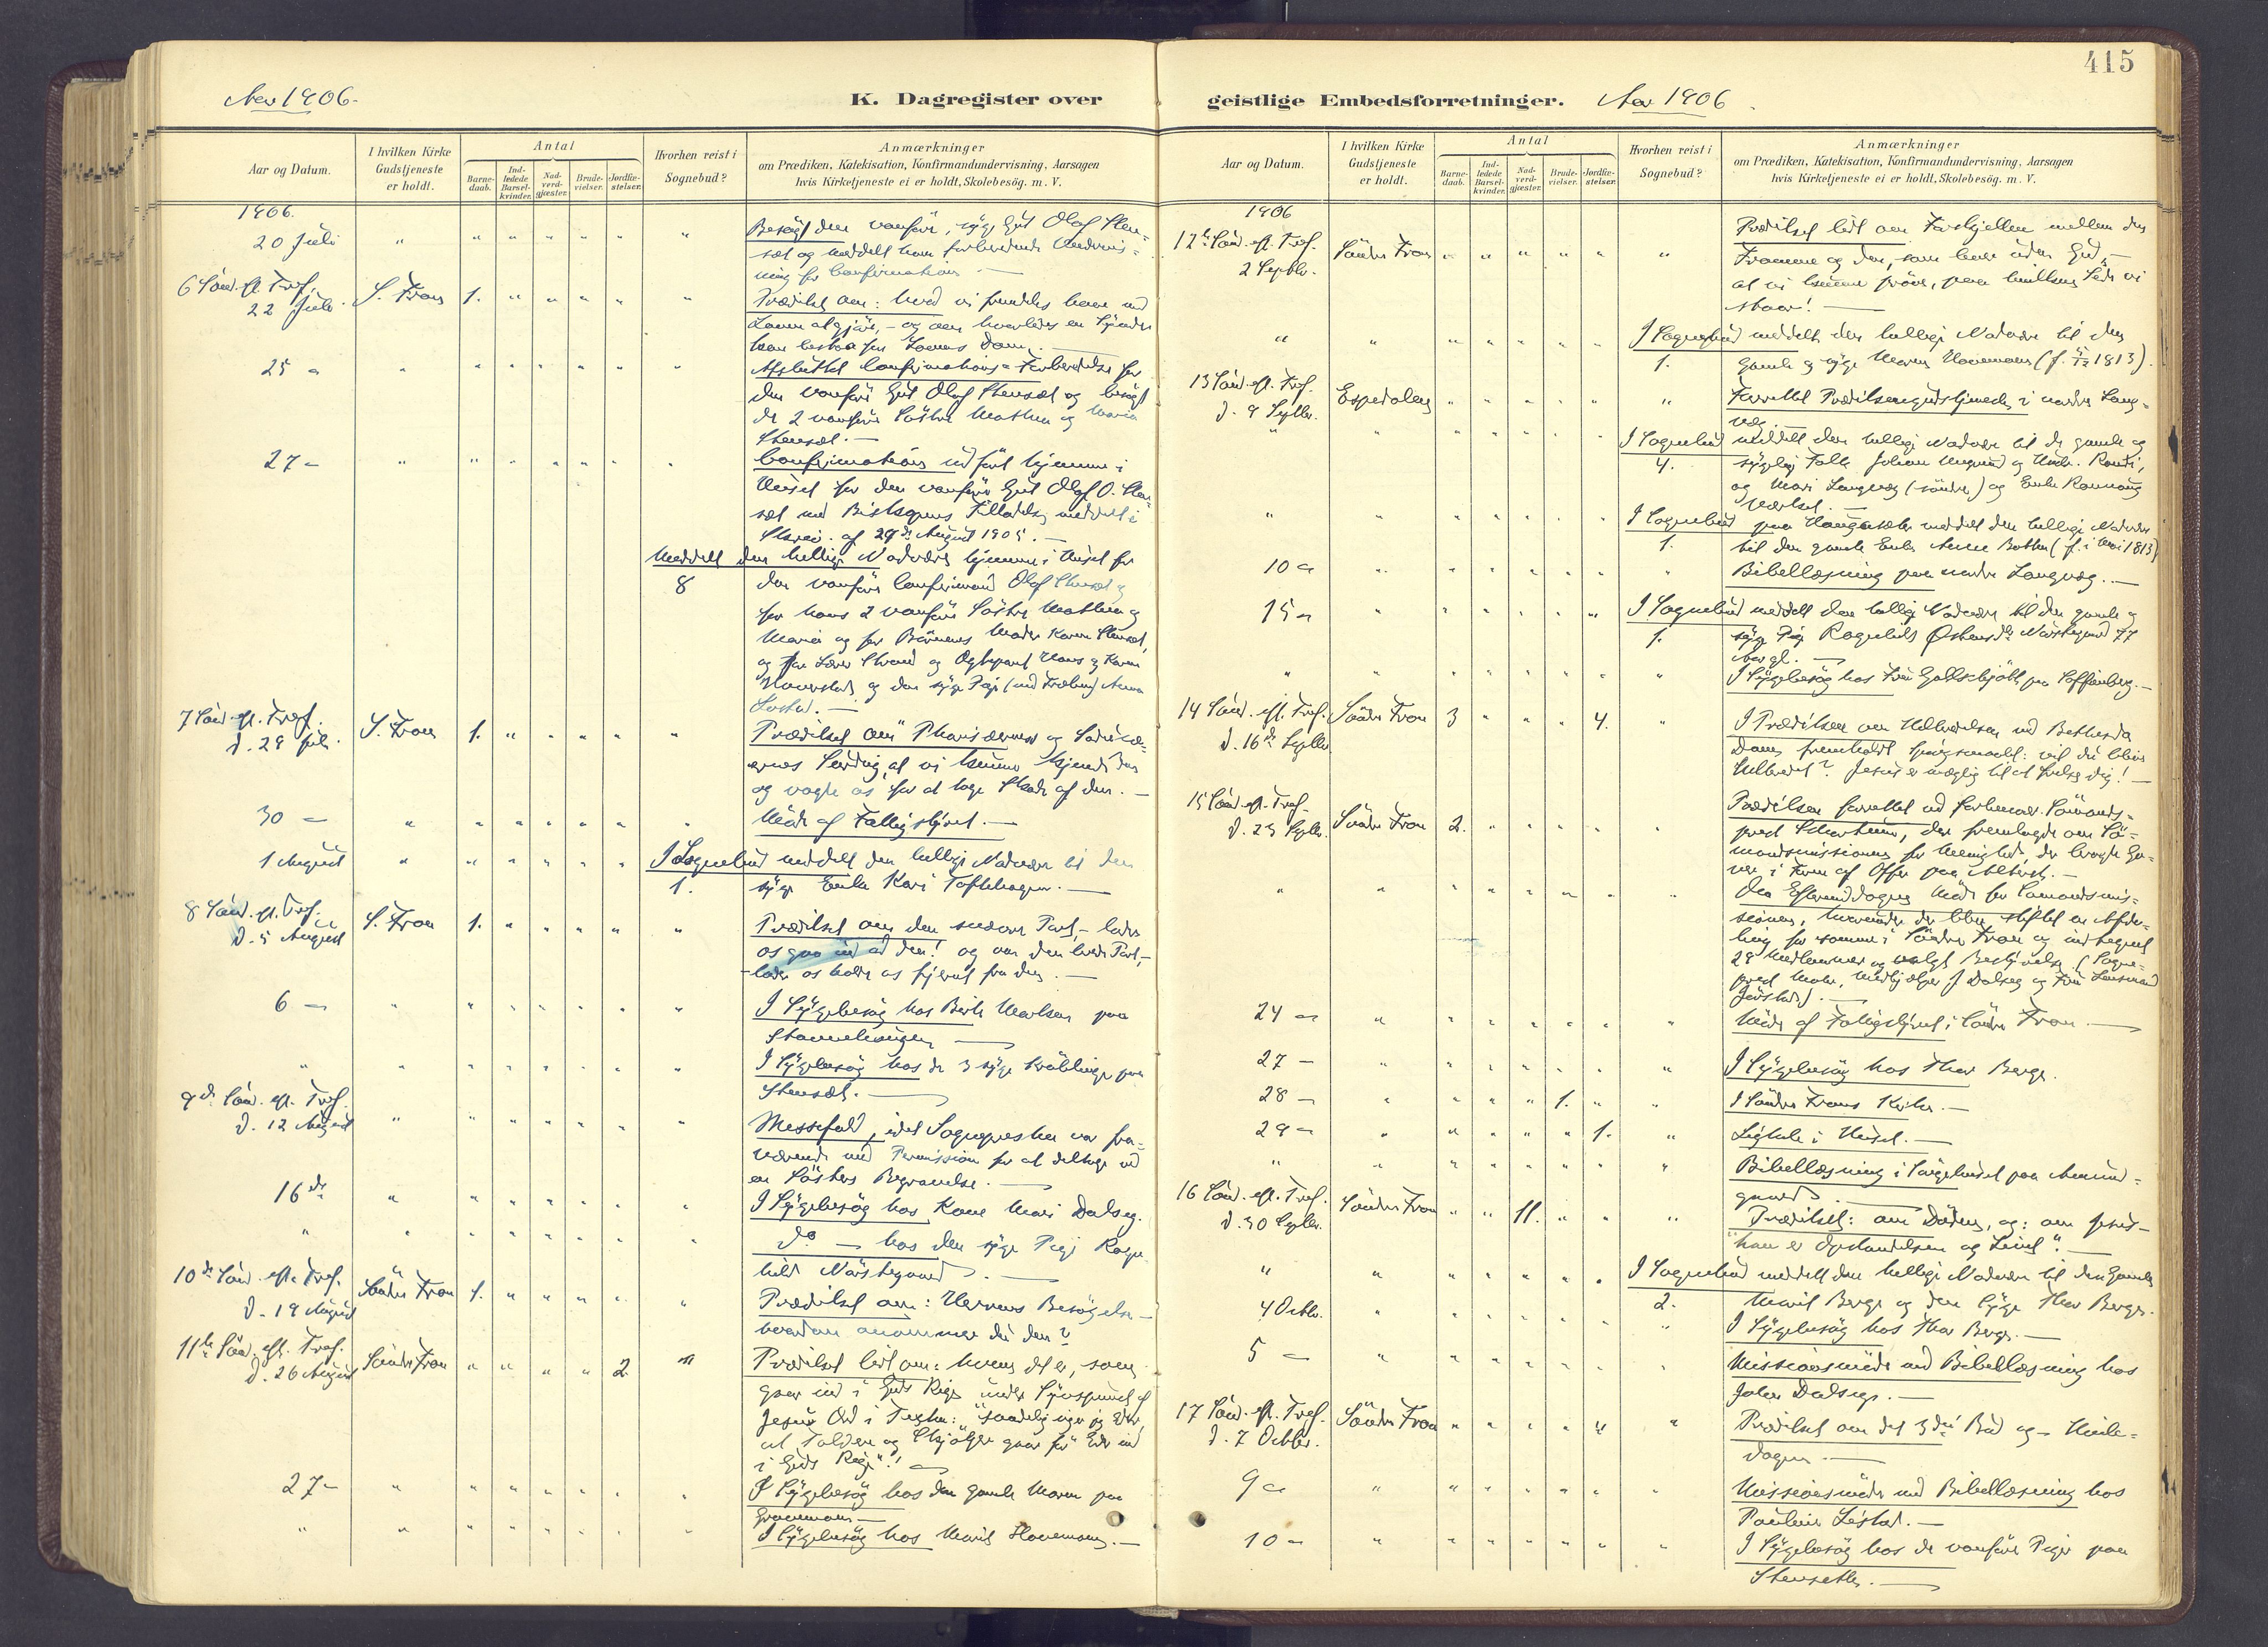 415
Aar 1906.
K. Dagregister over
geistlige Embedsforretninger.
Aar 1906
Aar og Datum.
I hvilken Kirke
Gudstjeneste
er holdt.
Antal
Barne-
daab.
Ind-
ledede
Barsel-
kvinder.
Nad-
verd-
gjæster.
Brude-
vielser.
Jordfæ-
stelser.
Hvorhen reist i
Sognebud?
Anmærkninger
om Prædiken, Katekisation, Konfirmandundervisning, Aarsagen
hvis Kirketjeneste ei er holdt, Skolebesög. m. V.
1906.
20 Juli
Besøgt den vanføre, syge Gut Olaf Sten-
sæt og meddelt ham forberedende Undervis-
ning for Confirmation
6 Sønd. eft. Tref.
22 Juli.
S. Fron 1.
Prædiket om: hvad vi fremdeles have med
Loven at gjøre, - og om hvorledes en Synder
kan bestaa for Lovens Dom.
25
Afsluttet Confirmations-Forberedelse for
den vanføre Gut Olaf Stensæt og besøgt
de 2 vanføre Søstre Mathea og Maria
Stensæt.
27
Confirmation udført hjemme i
Huset for den vanføre Gut Olaf O. Sten-
sæt med Biskopens Tilladelse meddelt i
Skriv. af 29de August 1905.
Meddelt den hellige Nadverd hjemme i Huset for
8 den vanføre Confirmand Olaf Stensæt og
for hans 2 vanføre Søstre Mathea og
Maria og for Børnenes Moder Karen Stensæt,
og for Lærer Strand og Ægtepart Hans og Karen
og den syge Pige
7 Sønd. eft. Tref.
d. 29 Juli.
S. Fron 1.
Prædiket om "Phariseernes og Saducæ-
ernes Surdeig, at vi kunne kjende den
og vogte os for at tage Skade af den.
30
Møde af Fattigstyret.
1 August
I Sognebud meddelt den hellige Nadverd til den
1. syge Enke Kari Toftehagen.
8 Sønd. eft. Tref.
d. 5 August
S. Fron 1.
Prædiket om den snevre Port, - lader
os gaa ind ad den! og om den brede Port, -
- lader os holde os fjernt fra den.
6
I Sygebesøg hos Berte Karlsen paa
I Sygebesøg hos de 3 syge Krøblinge paa
Stensæt.
9de Sønd. eft. Tref.
d. 12 August
Messefald, idet Sognepresten var fra-
værende med Permission for at deltage ved
en Søsters Begravelse.
16de
I Sygebesøg hos Kone Mari Dalseg.
do - hos den syge Pige Ragn-
hild Nørstegaard.
10de Sønd. eft. Tref.
d. 19 August
Søndre Fron 1.
Prædiket om: Herrens Besøgelse -
hvordan annammer du den?
11te Sønd. eft. Tref.
d. 26 August
Søndre Fron 2
Prædiket lidt om: hvem det er, som
gaar ind i Guds Rige under Synspunct af
Jesus Ord i Texten: "sandelig siger jeg Eder,
at Toldere og Skjøger gaar før Eder ind
i Guds Rige"!
27
I Sygebesøg hos den gamle Maren paa
I Sygebesøg hos Marit Hovemoen.
Aar og Datum.
I hvilken Kirke
Gudstjeneste
er holdt.
Antal
Barne-
daab.
Ind-
ledede
Barsel-
kvinder.
Nad-
verd-
gjæster.
Brude-
vielser.
Jordfæ-
stelser.
Hvorhen reist i
Sognebud?
Anmærkninger
om Prædiken, Katekisation, Konfirmandundervisning, Aarsagen
hvis Kirketjeneste ei er holdt, Skolebesög. m. V.
1906
12te Sønd. eft. Tref.
2 Septbr.
Søndre Fron
Prædiket lidt om Forskjellen mellem den
Fromme og den, som lever uden Gud, -
at vi kunne prøve, paa hvilken Side vi
staar!
I Sognebud meddelt den hellige Nadverd til den
1. gamle og syge Maren Hovemoen
13 Sønd. eft. Tref.
d. 9 Septbr.
Espedalen
Forrettet Prædikengudstjeneste i nordre Lang-
I Sognebud meddelt den hellige Nadverd til de gamle og
4. syge Folk Johan og Randi,
og Mari (søndre) og Enke Rannaug
I Sognebud paa meddelt den hellige Nadverd
1. til den gamle Enke Anne (f. i Mai 1813)
10
Bibellæsning paa nordre
15
I Sognebud meddelt den hellige Nadverd til den gamle og
1. syge Pige Ragnhild Østensdtr Nørstegaard 77
Aar gl.
I Sygebesøg hos Fru paa Steffenberg.
14 Sønd. eft. Tref.
d. 16de Septbr.
Søndre Fron 3 4.
I Prædiken om Helbredelsen ved Bethesda
Dam fremholdt Spørgsmaalet: vil du blive
helbredet? Jesus er mægtig til at frelse dig!
15 Sønd. eft. Tref.
d. 23 Septbr.
Søndre Fron 2.
Prædiken forrettet ved forhenvær. Sømands-
prest der fremlagde om Sø-
mandsmissionen for Menighed, der bragte Ga-
ver i Form af Offer paa Alteret.
Om Eftermiddagen Møde for Sømandsmis-
sionen, hvorunder der blev stiftet en Afde-
ling for samme i Søndre Fron og indtegnet
29 Medlemmer og valgt Bestyrelse (Sogne-
24
Møde af Fattigstyret i Søndre Fron.
27
I Sygebesøg hos Thor Berge.
28 1.
I Søndre Frons Kirke.
29 1.
Ligtale i Huset.
Bibellæsning i Sygehuset paa Amund-
16 Sønd. eft. Tref.
d. 30 Septbr.
Søndre Fron 11.
Prædiket: om Døden, og: om Jesus -
"han er Opstandelsen og Livet".
I Sognebud meddelt den hellige Nadverd til den Gamle
2. Marit Berge og den Syge Thor Berge.
4 Octbr.
I Sygebesøg hos Thor Berge.
5
Missionsmøde med Bibellæsning hos
Johan Dalseg.
17 Sønd. eft. Tref.
d. 7 Octbr.
Søndre Fron
Prædiket om det 3die Bud og - Hvile-
dagen.
9
Missionsmøde med Bibellæsning hos
10
I Sygebesøg hos de vanføre Piger paa